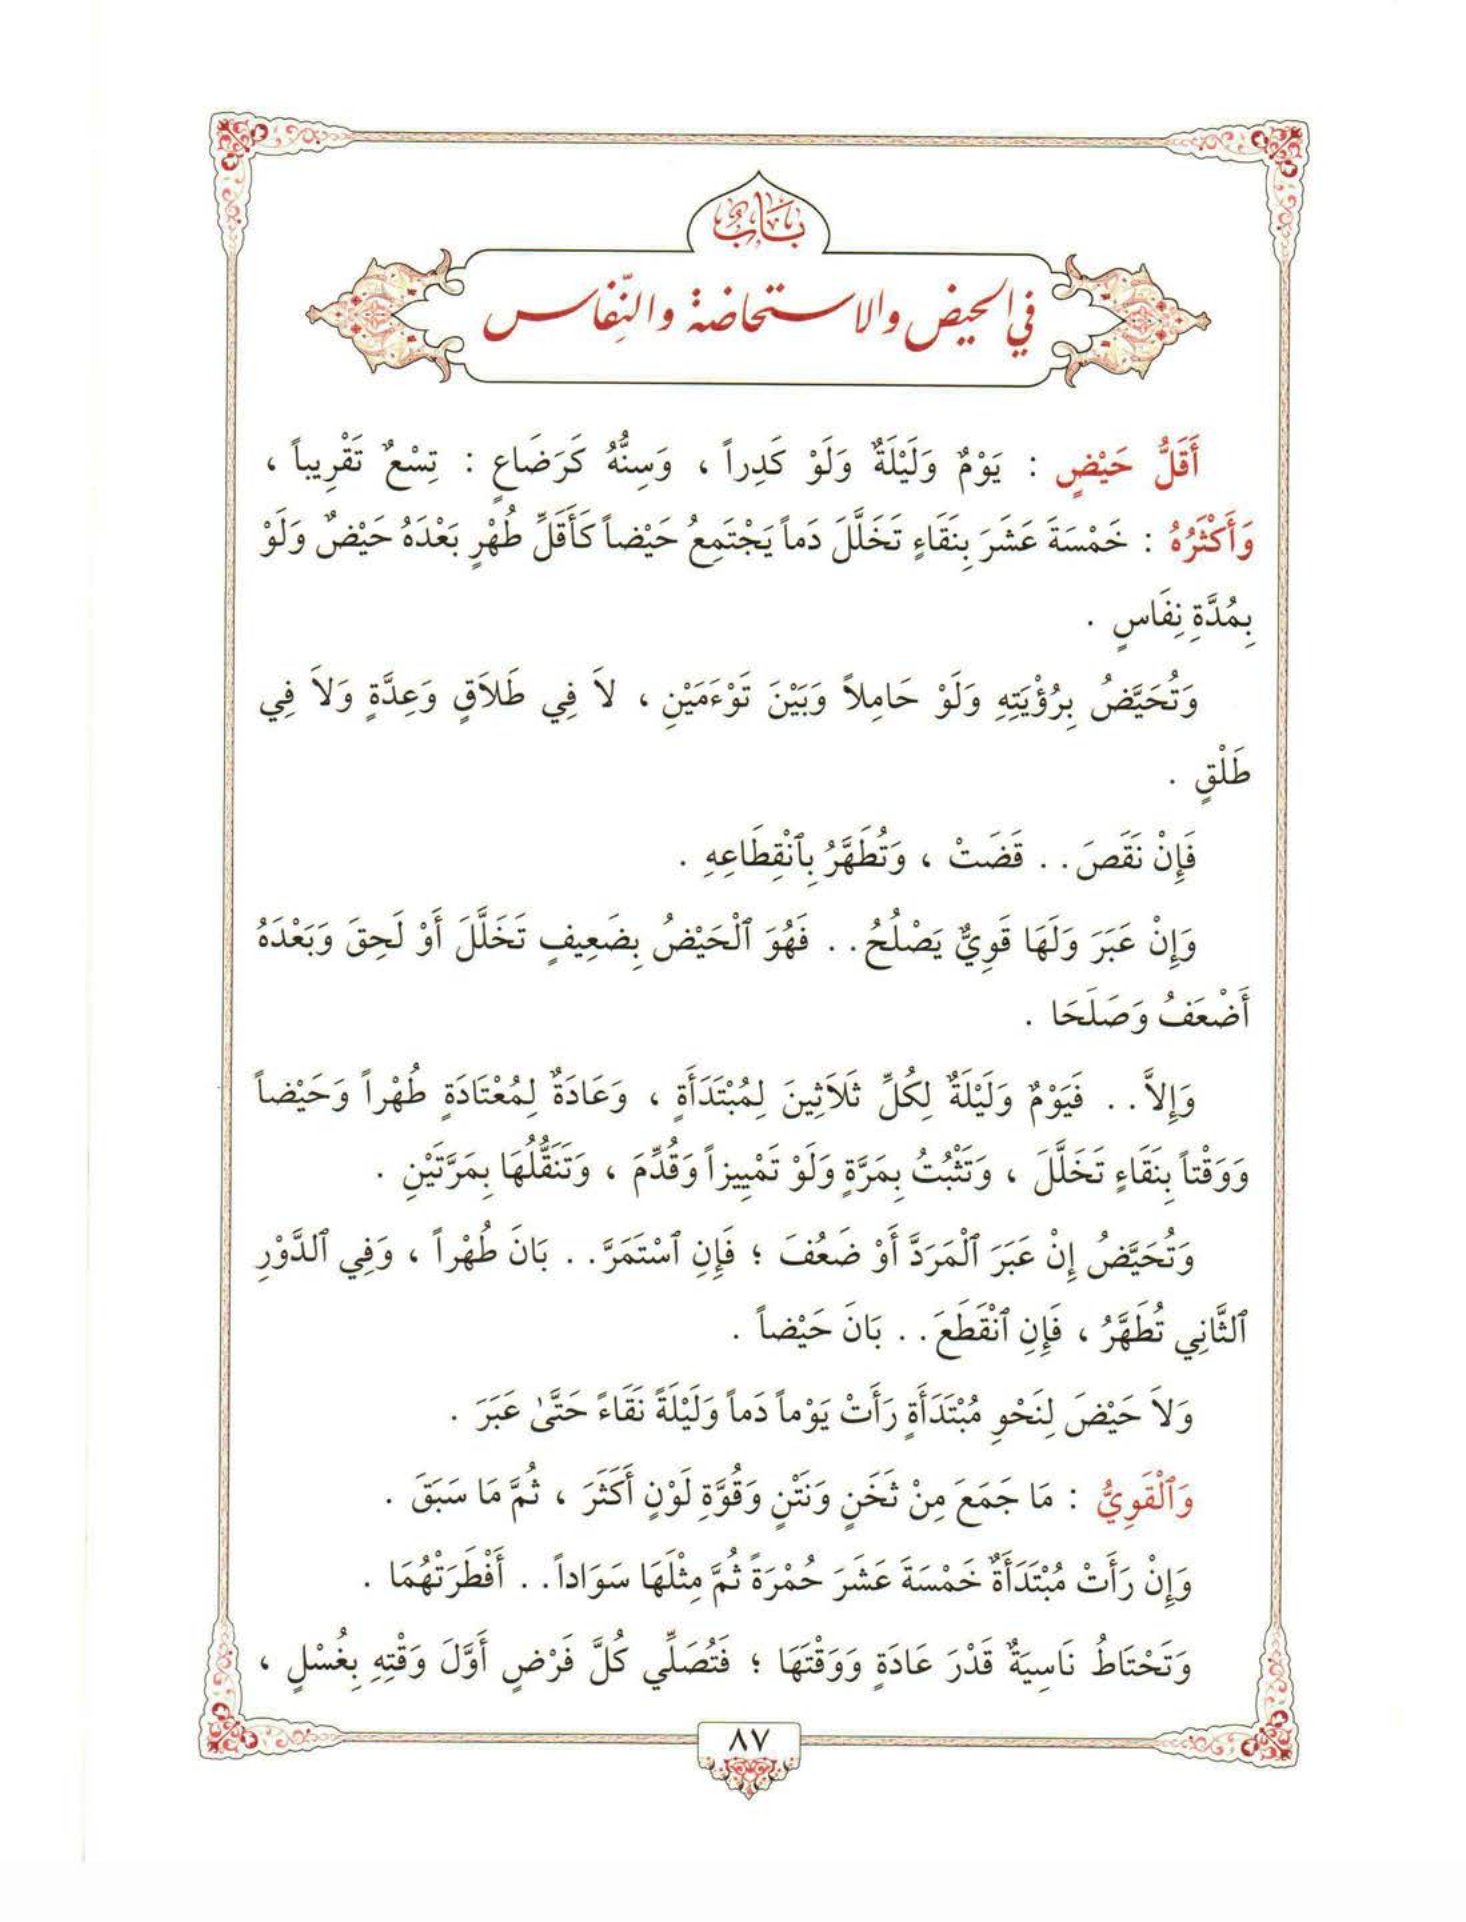 بَابٌ
في الحيض والاستحاضة والنّفاس
أَقَلُّ حَيْضٍ : يَوْمٌ وَلَيْلَةٌ وَلَوْ كَدِراً ، وَسِنُّهُ كَرَضَاعٍ : تِسْعٌ تَقْرِيباً ،
وَأَكْثَرُهُ : خَمْسَةَ عَشَرَ بِنَقَاءٍ تَخَلَّلَ دَماً يَجْتَمِعُ حَيْضاً كَأَقَلِّ طُهْرٍ بَعْدَهُ حَيْضٌ وَلَوْ
بِمُدَّةِ نِفَاسٍ .
وَتُحَيَّضُ بِرُؤْيَتِهِ وَلَوْ حَامِلاً وَبَيْنَ تَوْءَمَيْنِ ، لاَ فِي طَلاَقٍ وَعِدَّةٍ وَلاَ فِي
طَلْقٍ .
فَإِنْ نَقَصَ . . قَضَتْ ، وَتُطَهَّرُ بِٱنْقِطَاعِهِ .
وَإِنْ عَبَرَ وَلَهَا قَوِيٌّ يَصْلُحُ . . فَهُوَ ٱلْحَيْضُ بِضَعِيفٍ تَخَلَّلَ أَوْ لَحِقَ وَبَعْدَهُ
أَضْعَفُ وَصَلَحَا .
وَإِلاَّ . . فَيَوْمٌ وَلَيْلَةٌ لِكُلِّ ثَلاَثِينَ لِمُبْتَدَأَةٍ ، وَعَادَةٌ لِمُعْتَادَةٍ طُهْراً وَحَيْضاً
وَوَقْتاً بِنَقَاءٍ تَخَلَّلَ ، وَتَثْبُتُ بِمَرَّةٍ وَلَوْ تَمْيِيزاً وَقُدِّمَ ، وَتَنَقُّلُهَا بِمَرَّتَيْنِ .
وَتُحَيَّضُ إِنْ عَبَرَ ٱلْمَرَدَّ أَوْ ضَعُفَ ؛ فَإِنِ ٱسْتَمَرَّ . . بَانَ طُهْراً ، وَفِي ٱلدَّوْرِ
ٱلثَّانِي تُطَهَّرُ ، فَإِنِ ٱنْقَطَعَ . . بَانَ حَيْضاً .
وَلاَ حَيْضَ لِنَحْوِ مُبْتَدَأَةٍ رَأَتْ يَوْماً دَماً وَلَيْلَةً نَقَاءً حَتَّىٰ عَبَرَ .
وَٱلْقَوِيُّ : مَا جَمَعَ مِنْ ثَخَنٍ وَنَتْنٍ وَقُوَّةِ لَوْنٍ أَكَثَرَ ، ثُمَّ مَا سَبَقَ .
وَإِنْ رَأَتْ مُبْتَدَأَةٌ خَمْسَةَ عَشَرَ حُمْرَةً ثُمَّ مِثْلَهَا سَوَاداً . . أَفْطَرَتْهُمَا .
وَتَحْتَاطُ نَاسِيَةٌ قَدْرَ عَادَةٍ وَوَقْتَهَا ؛ فَتُصَلِّي كُلَّ فَرْضٍ أَوَّلَ وَقْتِهِ بِغُسْلٍ ،
٨٧